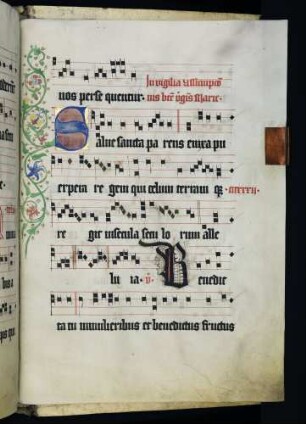 In vigilia visitacio
uos perse quentur. nis btē vgīs Marie.
Salue sancta pa rens enixa pu
erpera re gem qui celum terram q3
re git in secula secu lo rum alle
lu ia. v. Benedic
ta tu in mulieribus et benedictus fructus